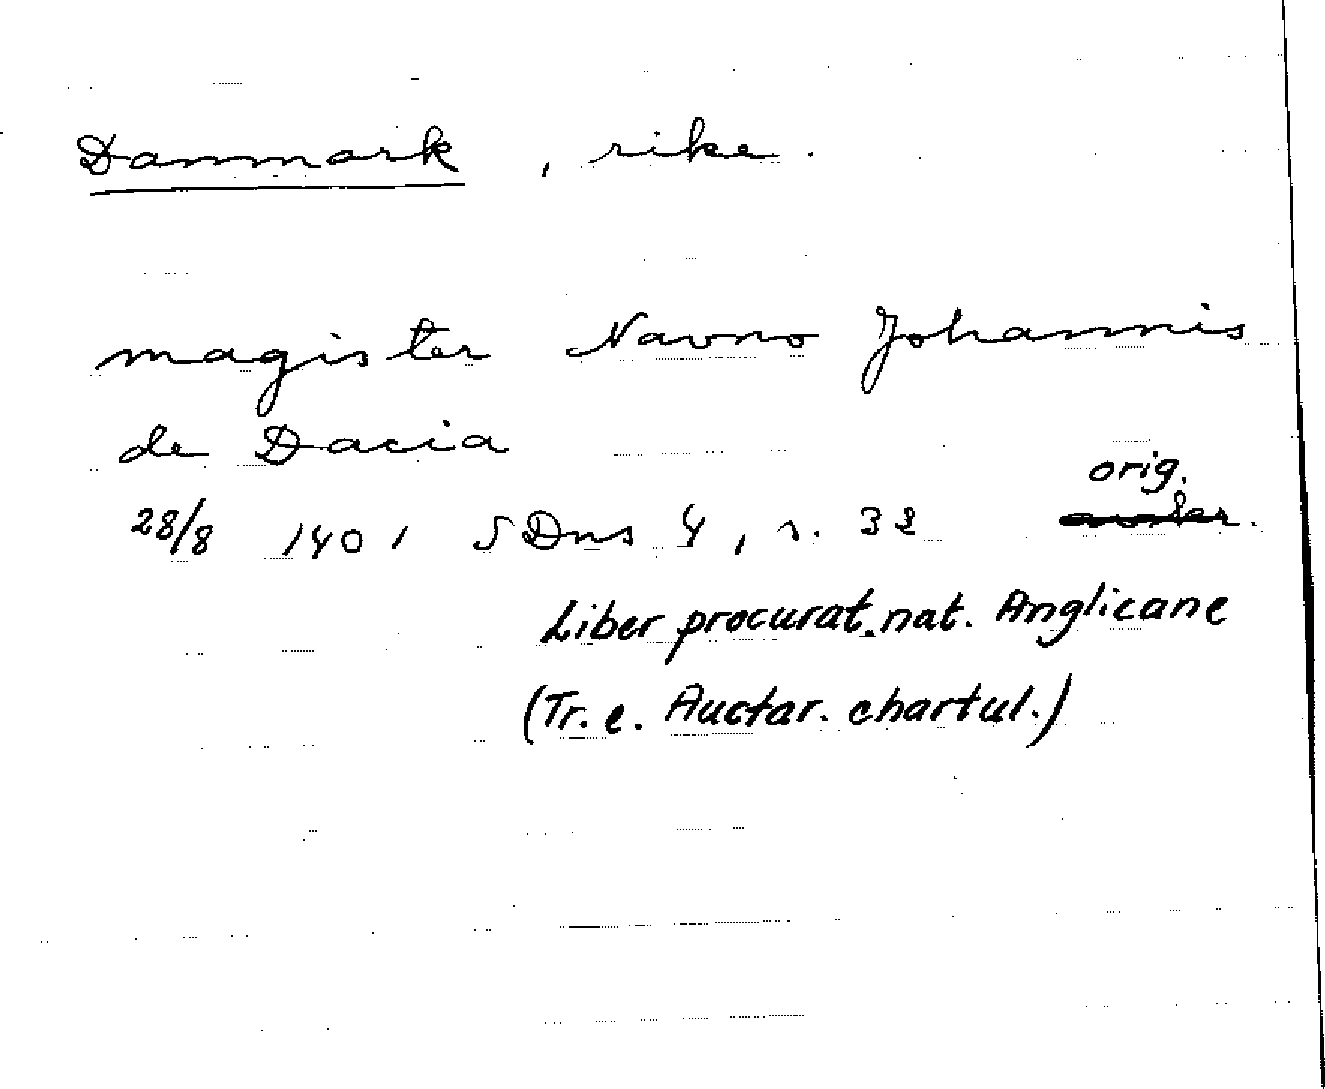 Danmark, rike.
magister Navno Johannis
de Dacia
orig.
28/8 1401 SDns 4, s. 32
Liber procurat. nat. Anglicane
(Tr. e. Auctar. chartul.)